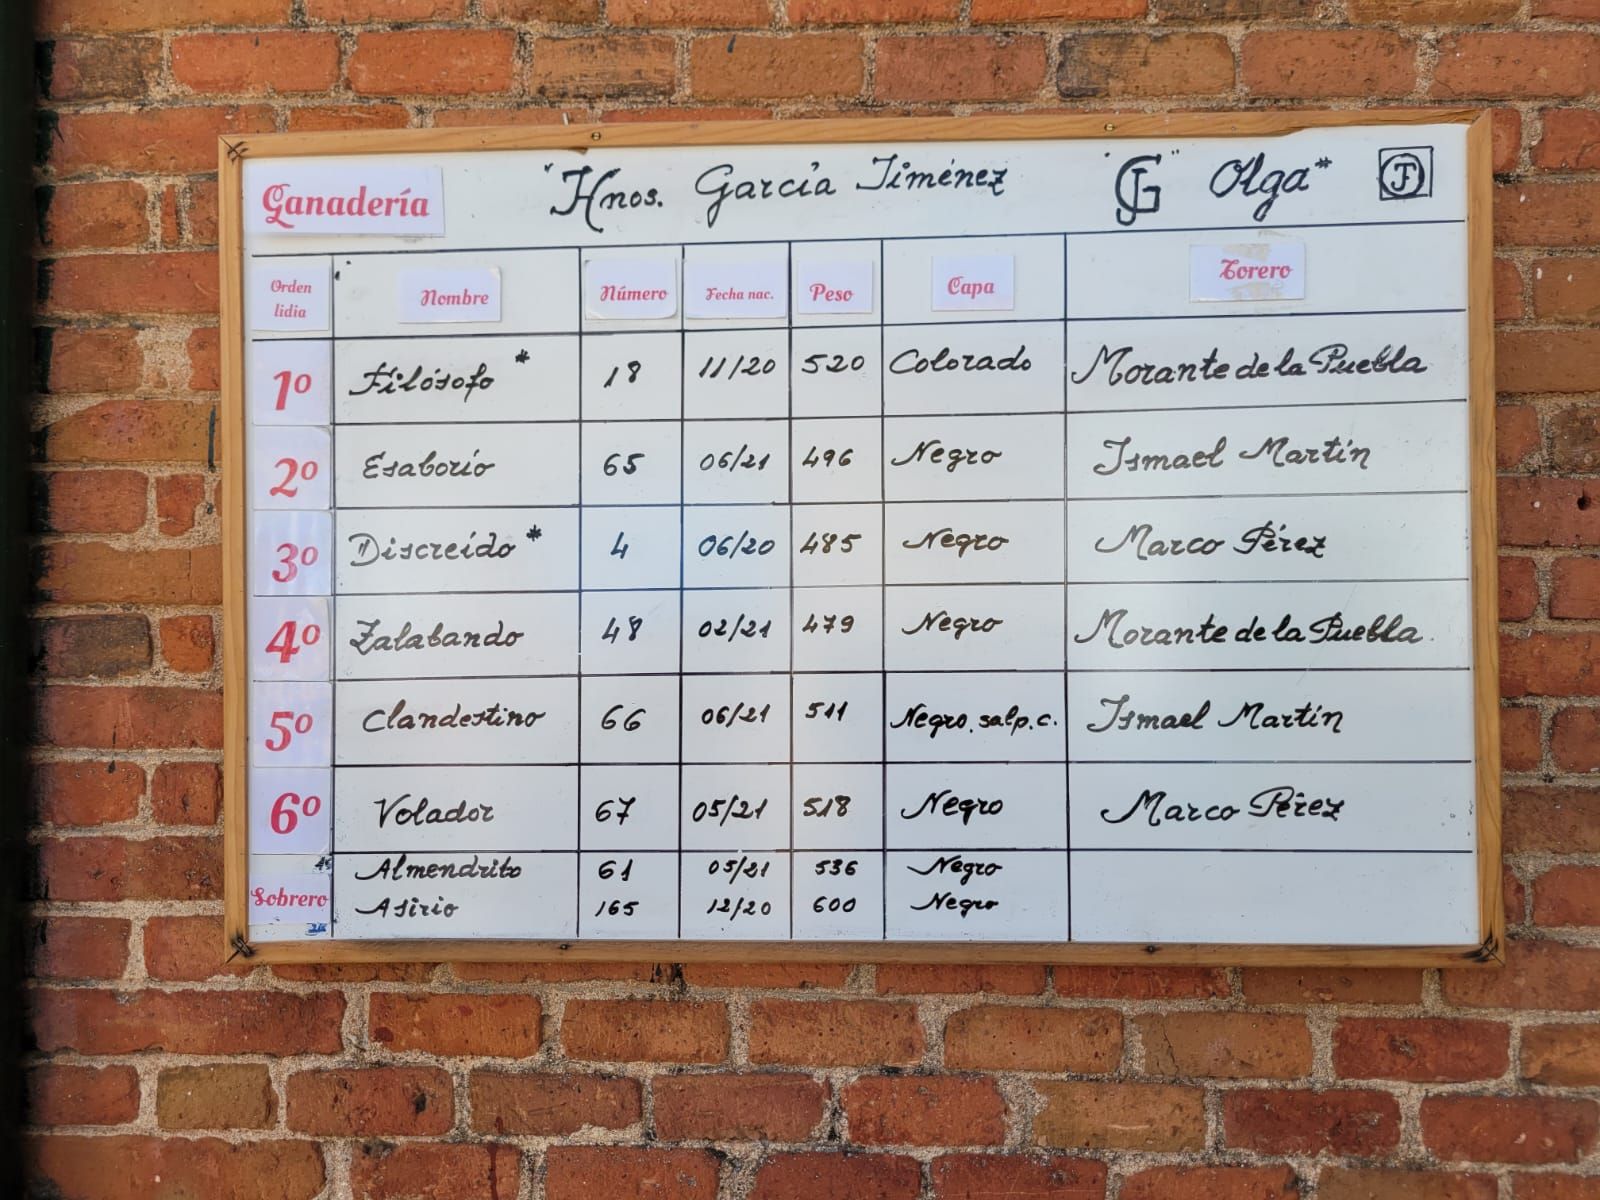 Ganadería "Hnos. García Jiménez "JG" Olga* JF
Orden lidia Nombre Número Fecha nac. Peso Capa Torero
1º Filósofo * 18 11/20 520 Colorado Morante de la Puebla
2º Esaborío 65 06/21 496 Negro Ismael Martín
3º Discreído * 4 06/20 485 Negro Marco Pérez
4º Zalabando 48 02/21 479 Negro Morante de la Puebla.
5º Clandestino 66 06/21 511 Negro.salp.c. Ismael Martín
6º Volador 67 05/21 518 Negro Marco Pérez
Sobrero Almendrito 61 05/21 536 Negro
Asirio 165 12/20 600 Negro